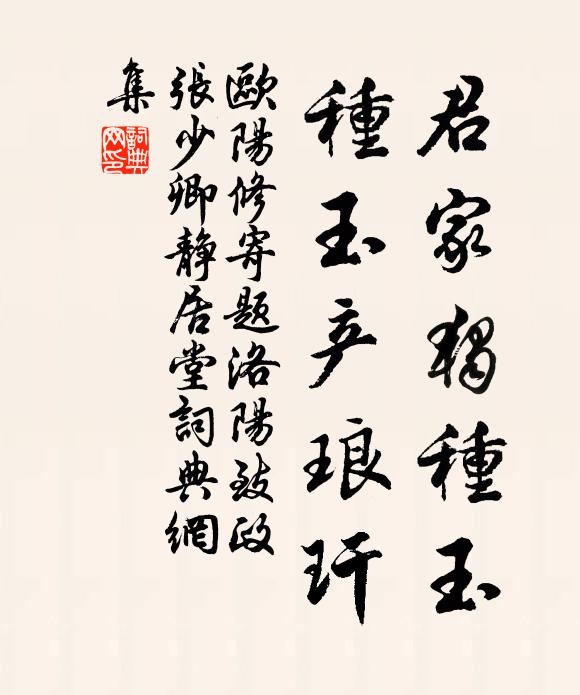 君家獨種玉
種玉产琅玕
歐陽修寄題洛陽致政
張少卿靜居堂詞典網
集
詞典網印